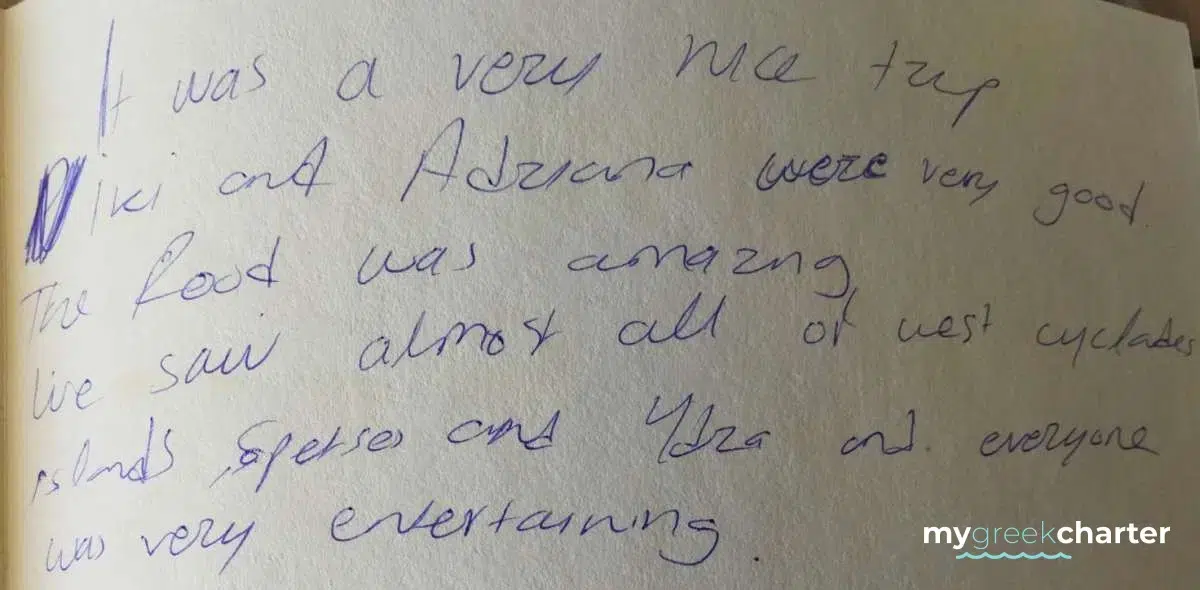 It was a very nice trip
Niki and Adriana were very good
The food was amazing
We saw almost all of west cyclades
islands Spetses and Ydra and everyone
was very entertaining.
mygreekcharter